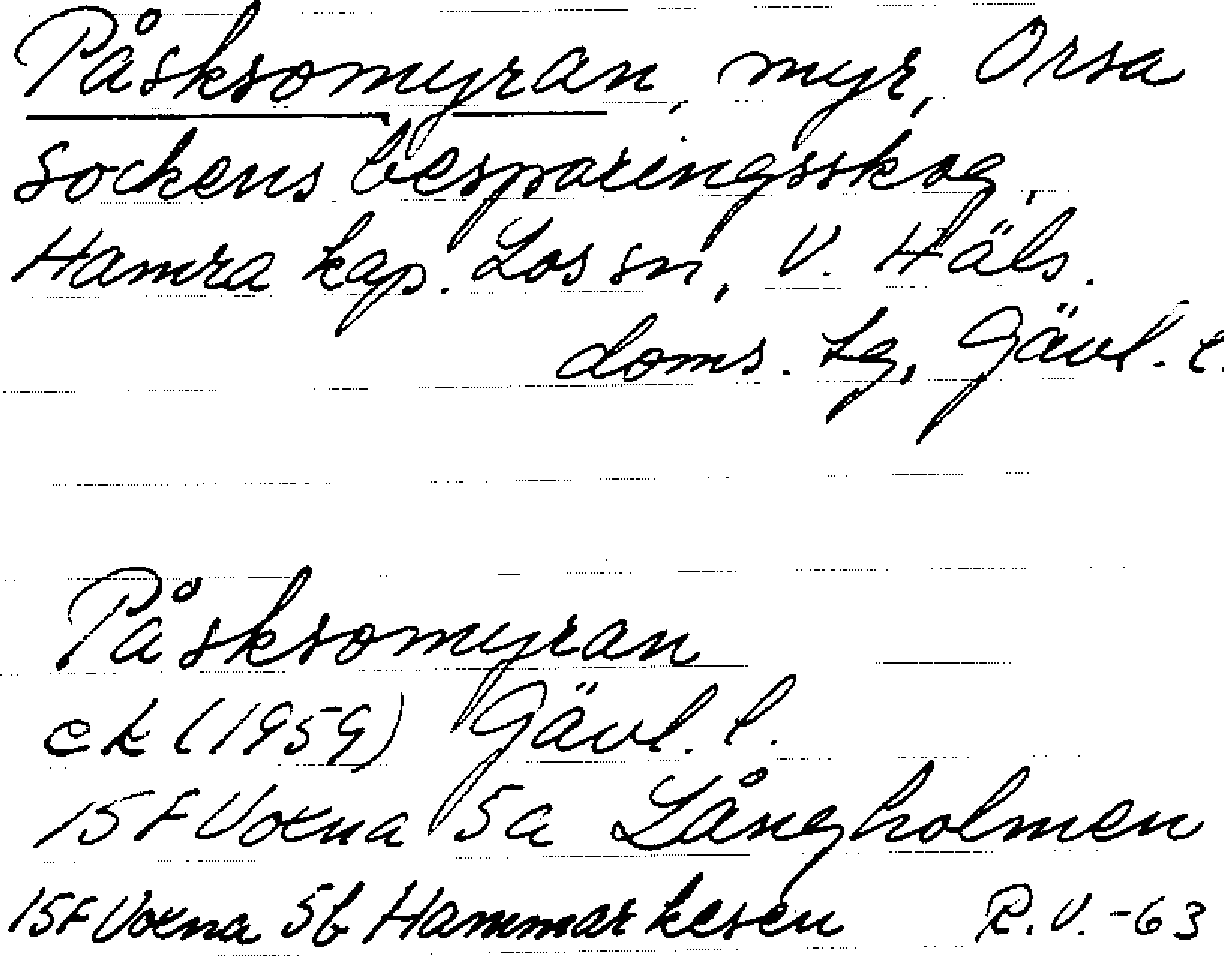 Påsksomyran, myr, Orsa
sockens besparingsskog,
Hamra kap. Los sn, V. Häls.
doms. tg, Gävl. l.
Påsksomyran
ek (1959) Gävl. l.
15F Voxna 5a Långholmen
15F Voxna 5b Hammarkesen R.V. -63